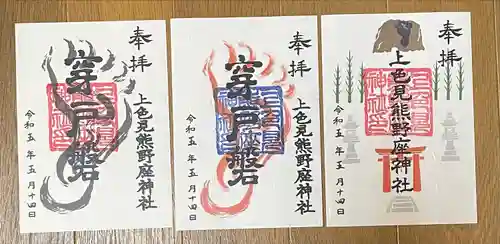 奉拝
上色見熊野座神社
穿戸磐石
令和五年五月十四日
奉拝
上色見熊野座神社
穿戸磐石
令和五年五月十四日
奉拝
上色見熊野座神社
令和五年五月十四日